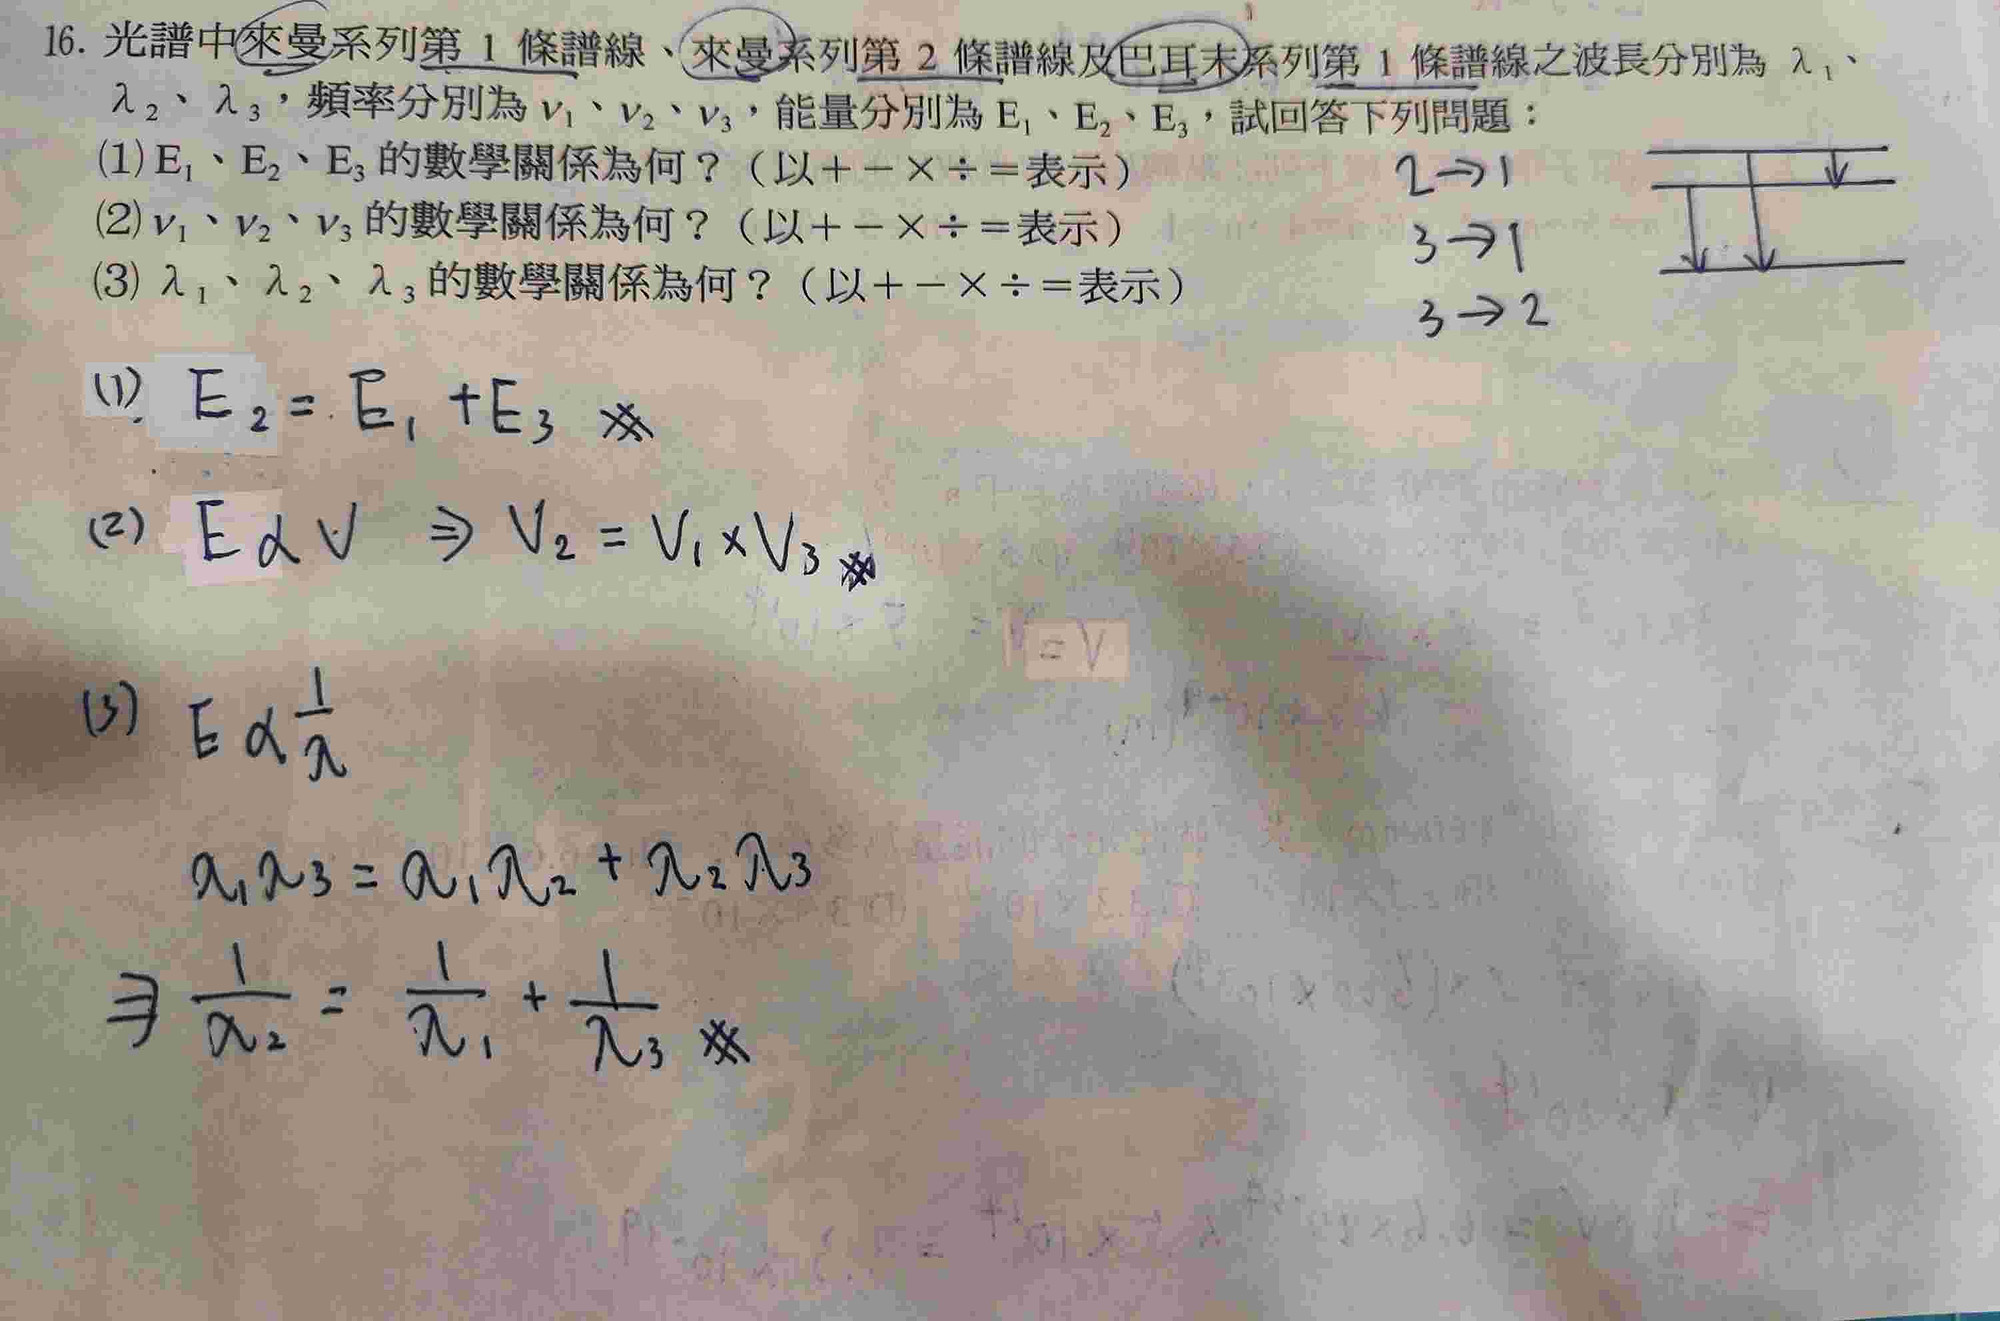 16. 光譜中來曼系列第 1 條譜線、來曼系列第 2 條譜線及巴耳末系列第 1 條譜線之波長分別為 λ₁、
λ₂、λ₃，頻率分別為 ν₁、ν₂、ν₃，能量分別為 E₁、E₂、E₃，試回答下列問題：
(1) E₁、E₂、E₃ 的數學關係為何？（以＋－×÷＝表示）
2→1
(2) ν₁、ν₂、ν₃ 的數學關係為何？（以＋－×÷＝表示）
3→1
(3) λ₁、λ₂、λ₃ 的數學關係為何？（以＋－×÷＝表示）
3→2
(1) E₂ = E₁ + E₃ ※
(2) E ∝ V ⇒ V₂ = V₁ × V₃ ※
(3) E ∝ 1/λ
λ₁λ₃ = λ₁λ₂ + λ₂λ₃
⇒ 1/λ₂ = 1/λ₁ + 1/λ₃ ※